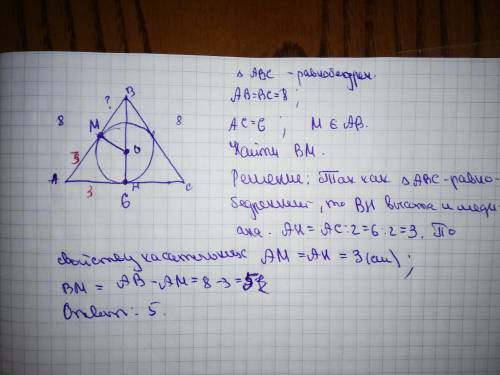 Δ ABC - равнобедрен.
AB=BC=8 ;
AC=6 ; M ∈ AB.
Найти BM.
Решение: Так как Δ ABC - равно-
бедренный, то BH высота и меди-
ана. AH = AC:2=6:2=3. По
свойству касательных AM = AH = 3 (см) ;
BM = AB - AM = 8 - 3 = 5
Ответ: 5.
B
?
8
8
M
O
3
A
3
H
C
6